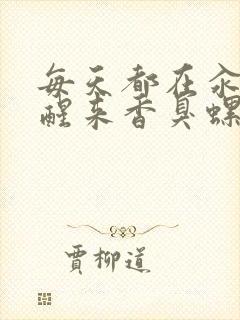 每天都在汆
醒来香臭螺
贾柳道